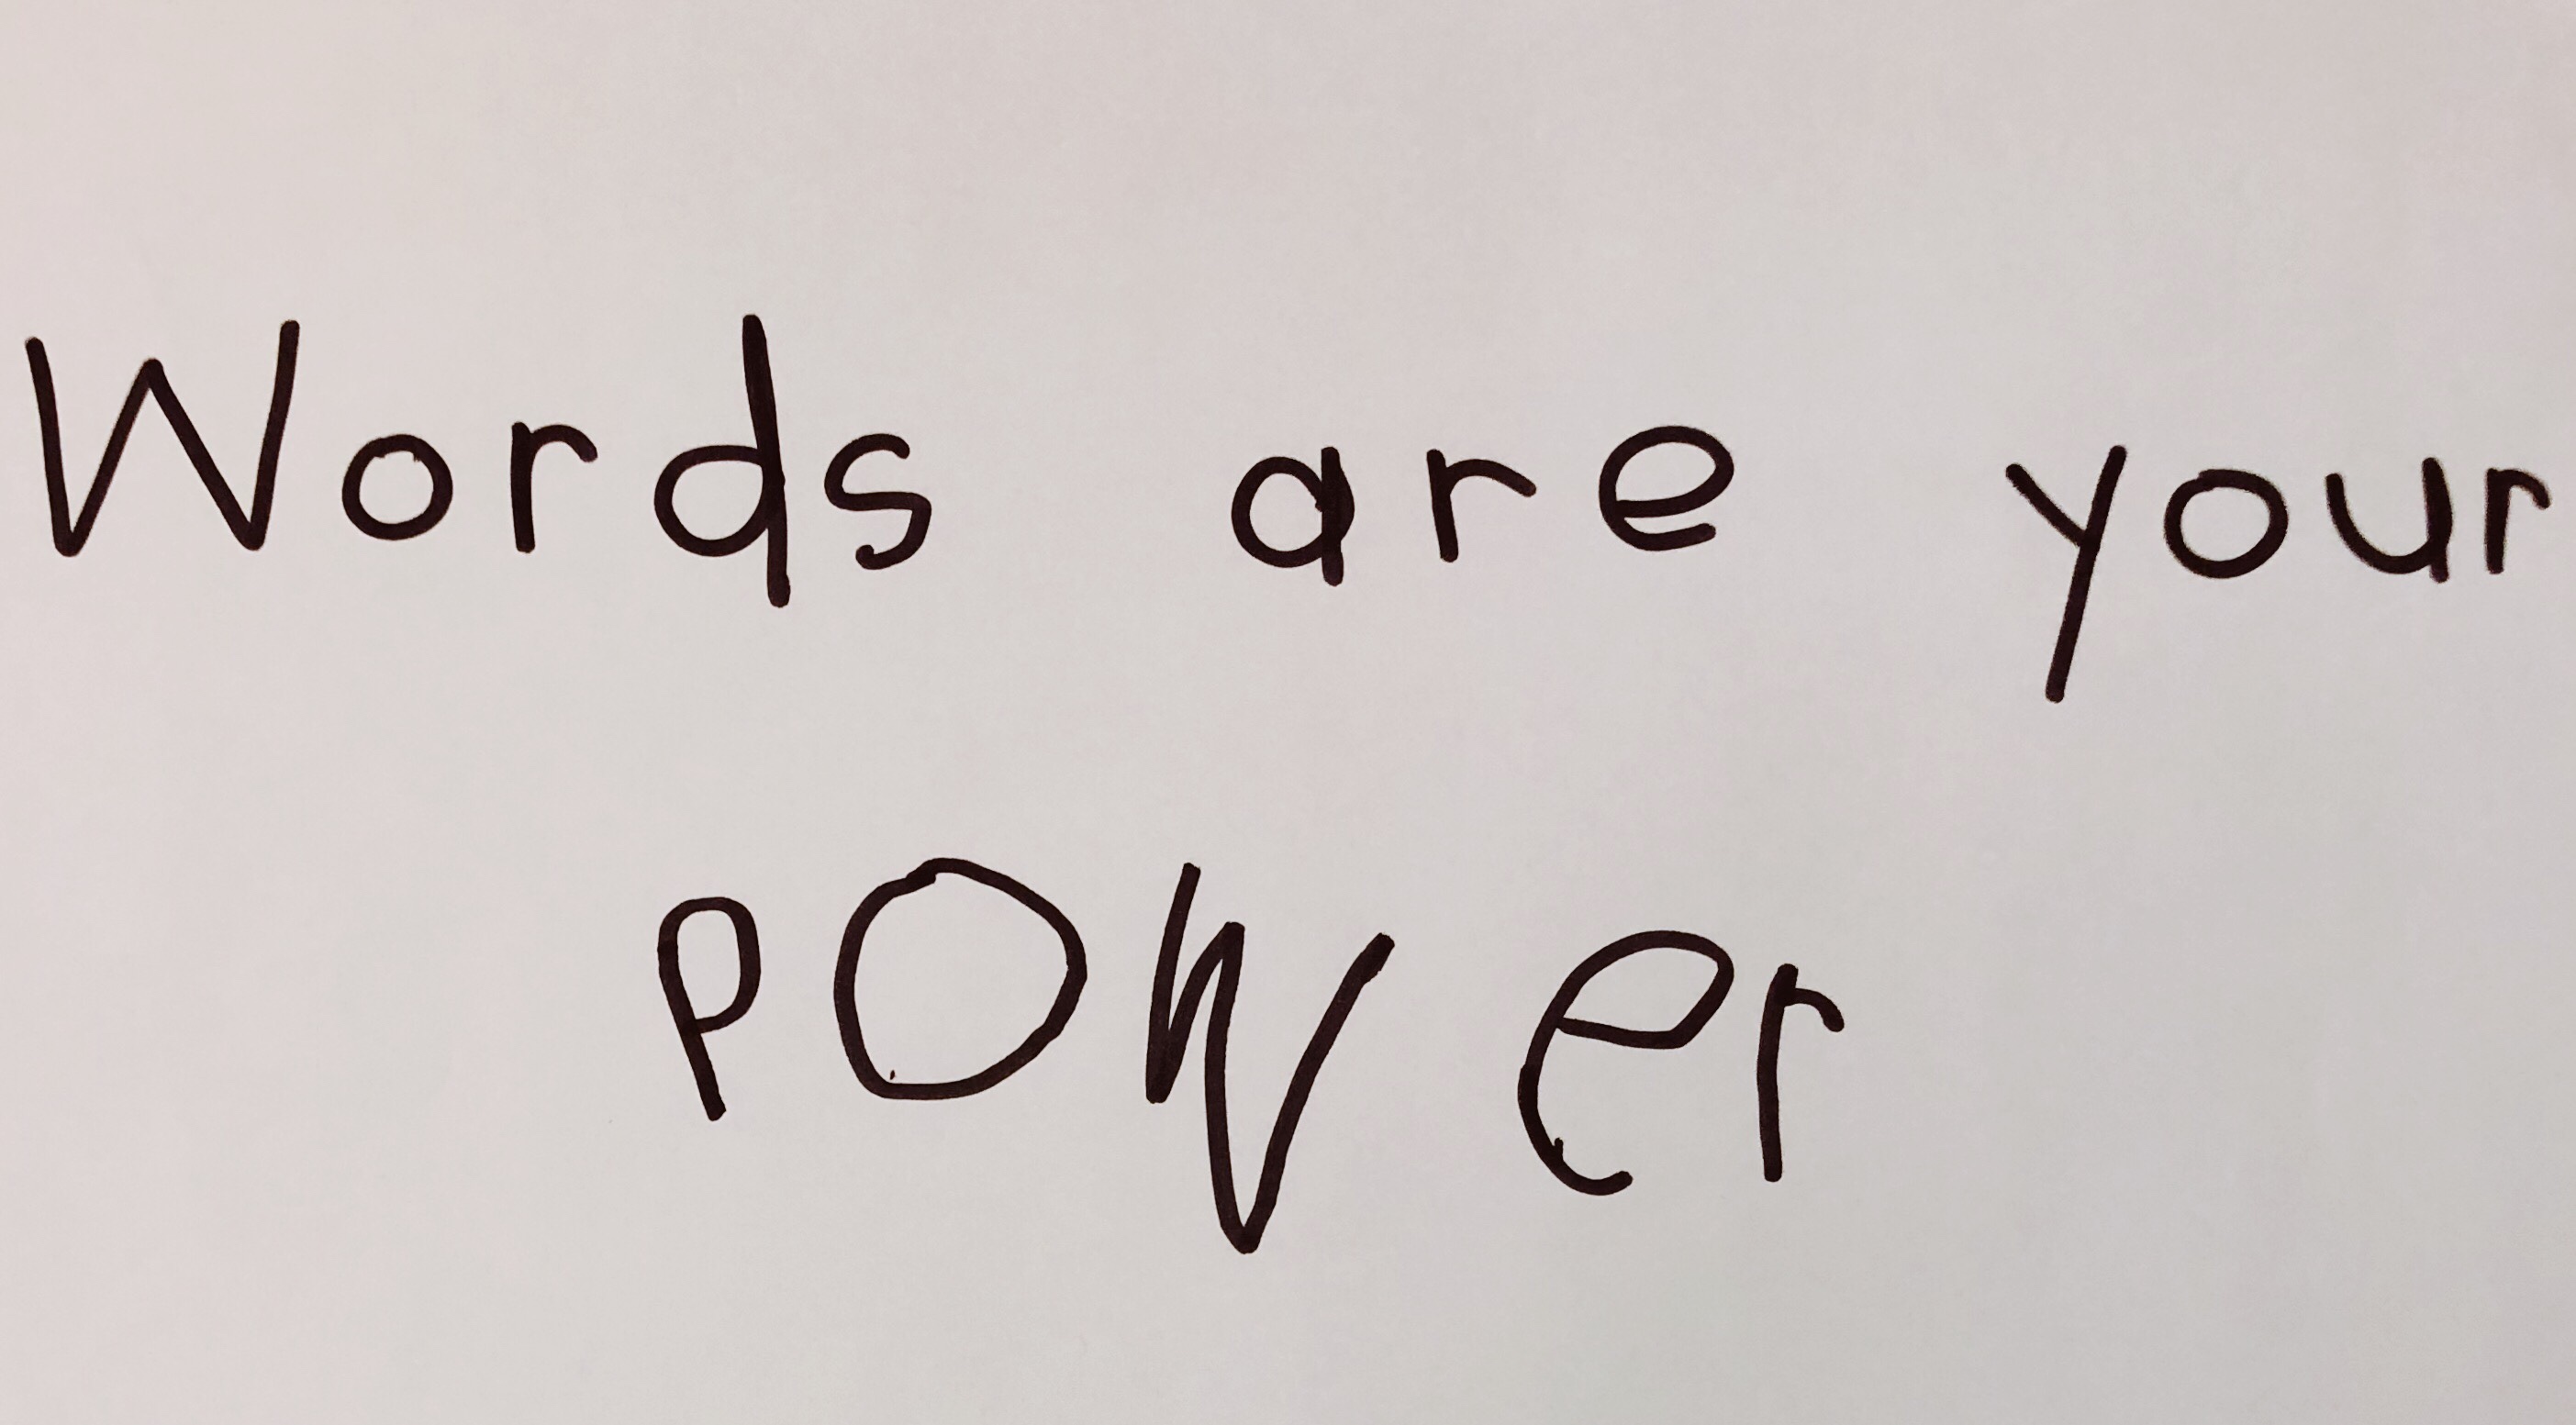 Words are your
power